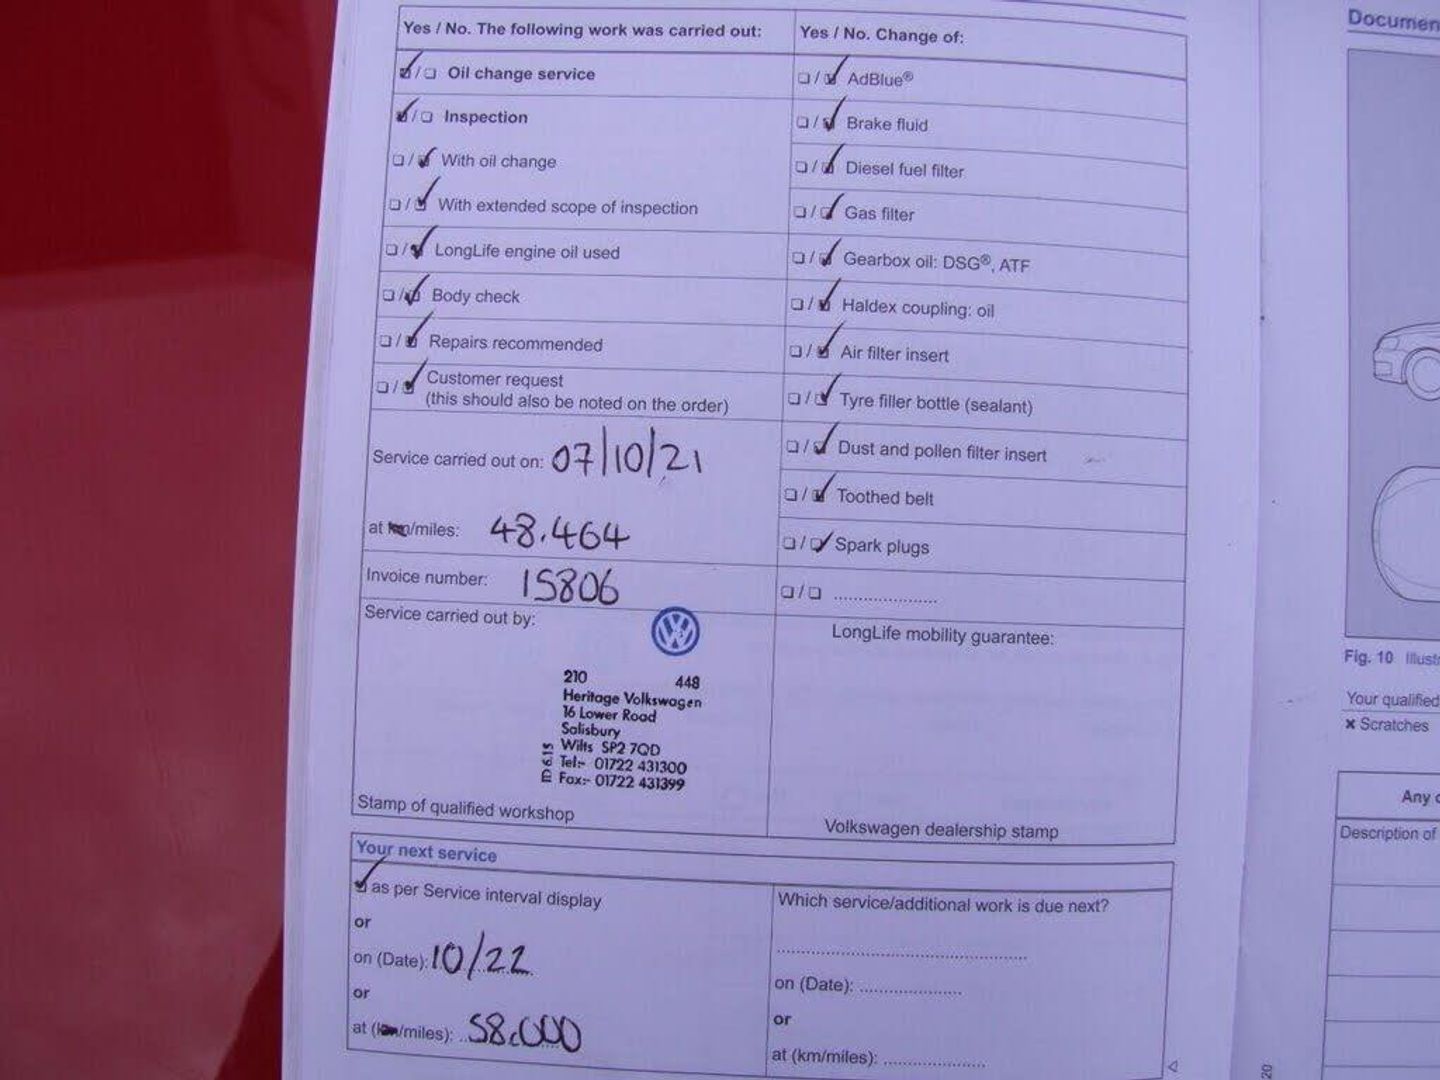 Yes / No. The following work was carried out:
☑/☐ Oil change service
☑/☐ Inspection
☐/☑ With oil change
☐/☑ With extended scope of inspection
☐/☑ LongLife engine oil used
☐/☑ Body check
☐/☑ Repairs recommended
☐/☑ Customer request
(this should also be noted on the order)
Service carried out on: 07/10/21
at km/miles: 48.464
Invoice number: 15806
Service carried out by:
210 448
Heritage Volkswagen
16 Lower Road
Salisbury
Wilts SP2 7QD
Tel:- 01722 431300
Fax:- 01722 431399
ID 615
Stamp of qualified workshop
Yes / No. Change of:
☐/☑ AdBlue®
☐/☑ Brake fluid
☐/☑ Diesel fuel filter
☐/☑ Gas filter
☐/☑ Gearbox oil: DSG®, ATF
☐/☑ Haldex coupling: oil
☐/☑ Air filter insert
☐/☑ Tyre filler bottle (sealant)
☐/☑ Dust and pollen filter insert
☐/☑ Toothed belt
☐/☑ Spark plugs
☐/☐ ....................
LongLife mobility guarantee:
Volkswagen dealership stamp
Your next service
☑ as per Service interval display
or
on (Date): 10/22
or
at (km/miles): 58.000
Which service/additional work is due next?
on (Date): ....................
or
at (km/miles): ....................
Documen
Fig. 10 Illust
Your qualified
× Scratches
Any
Description of
20